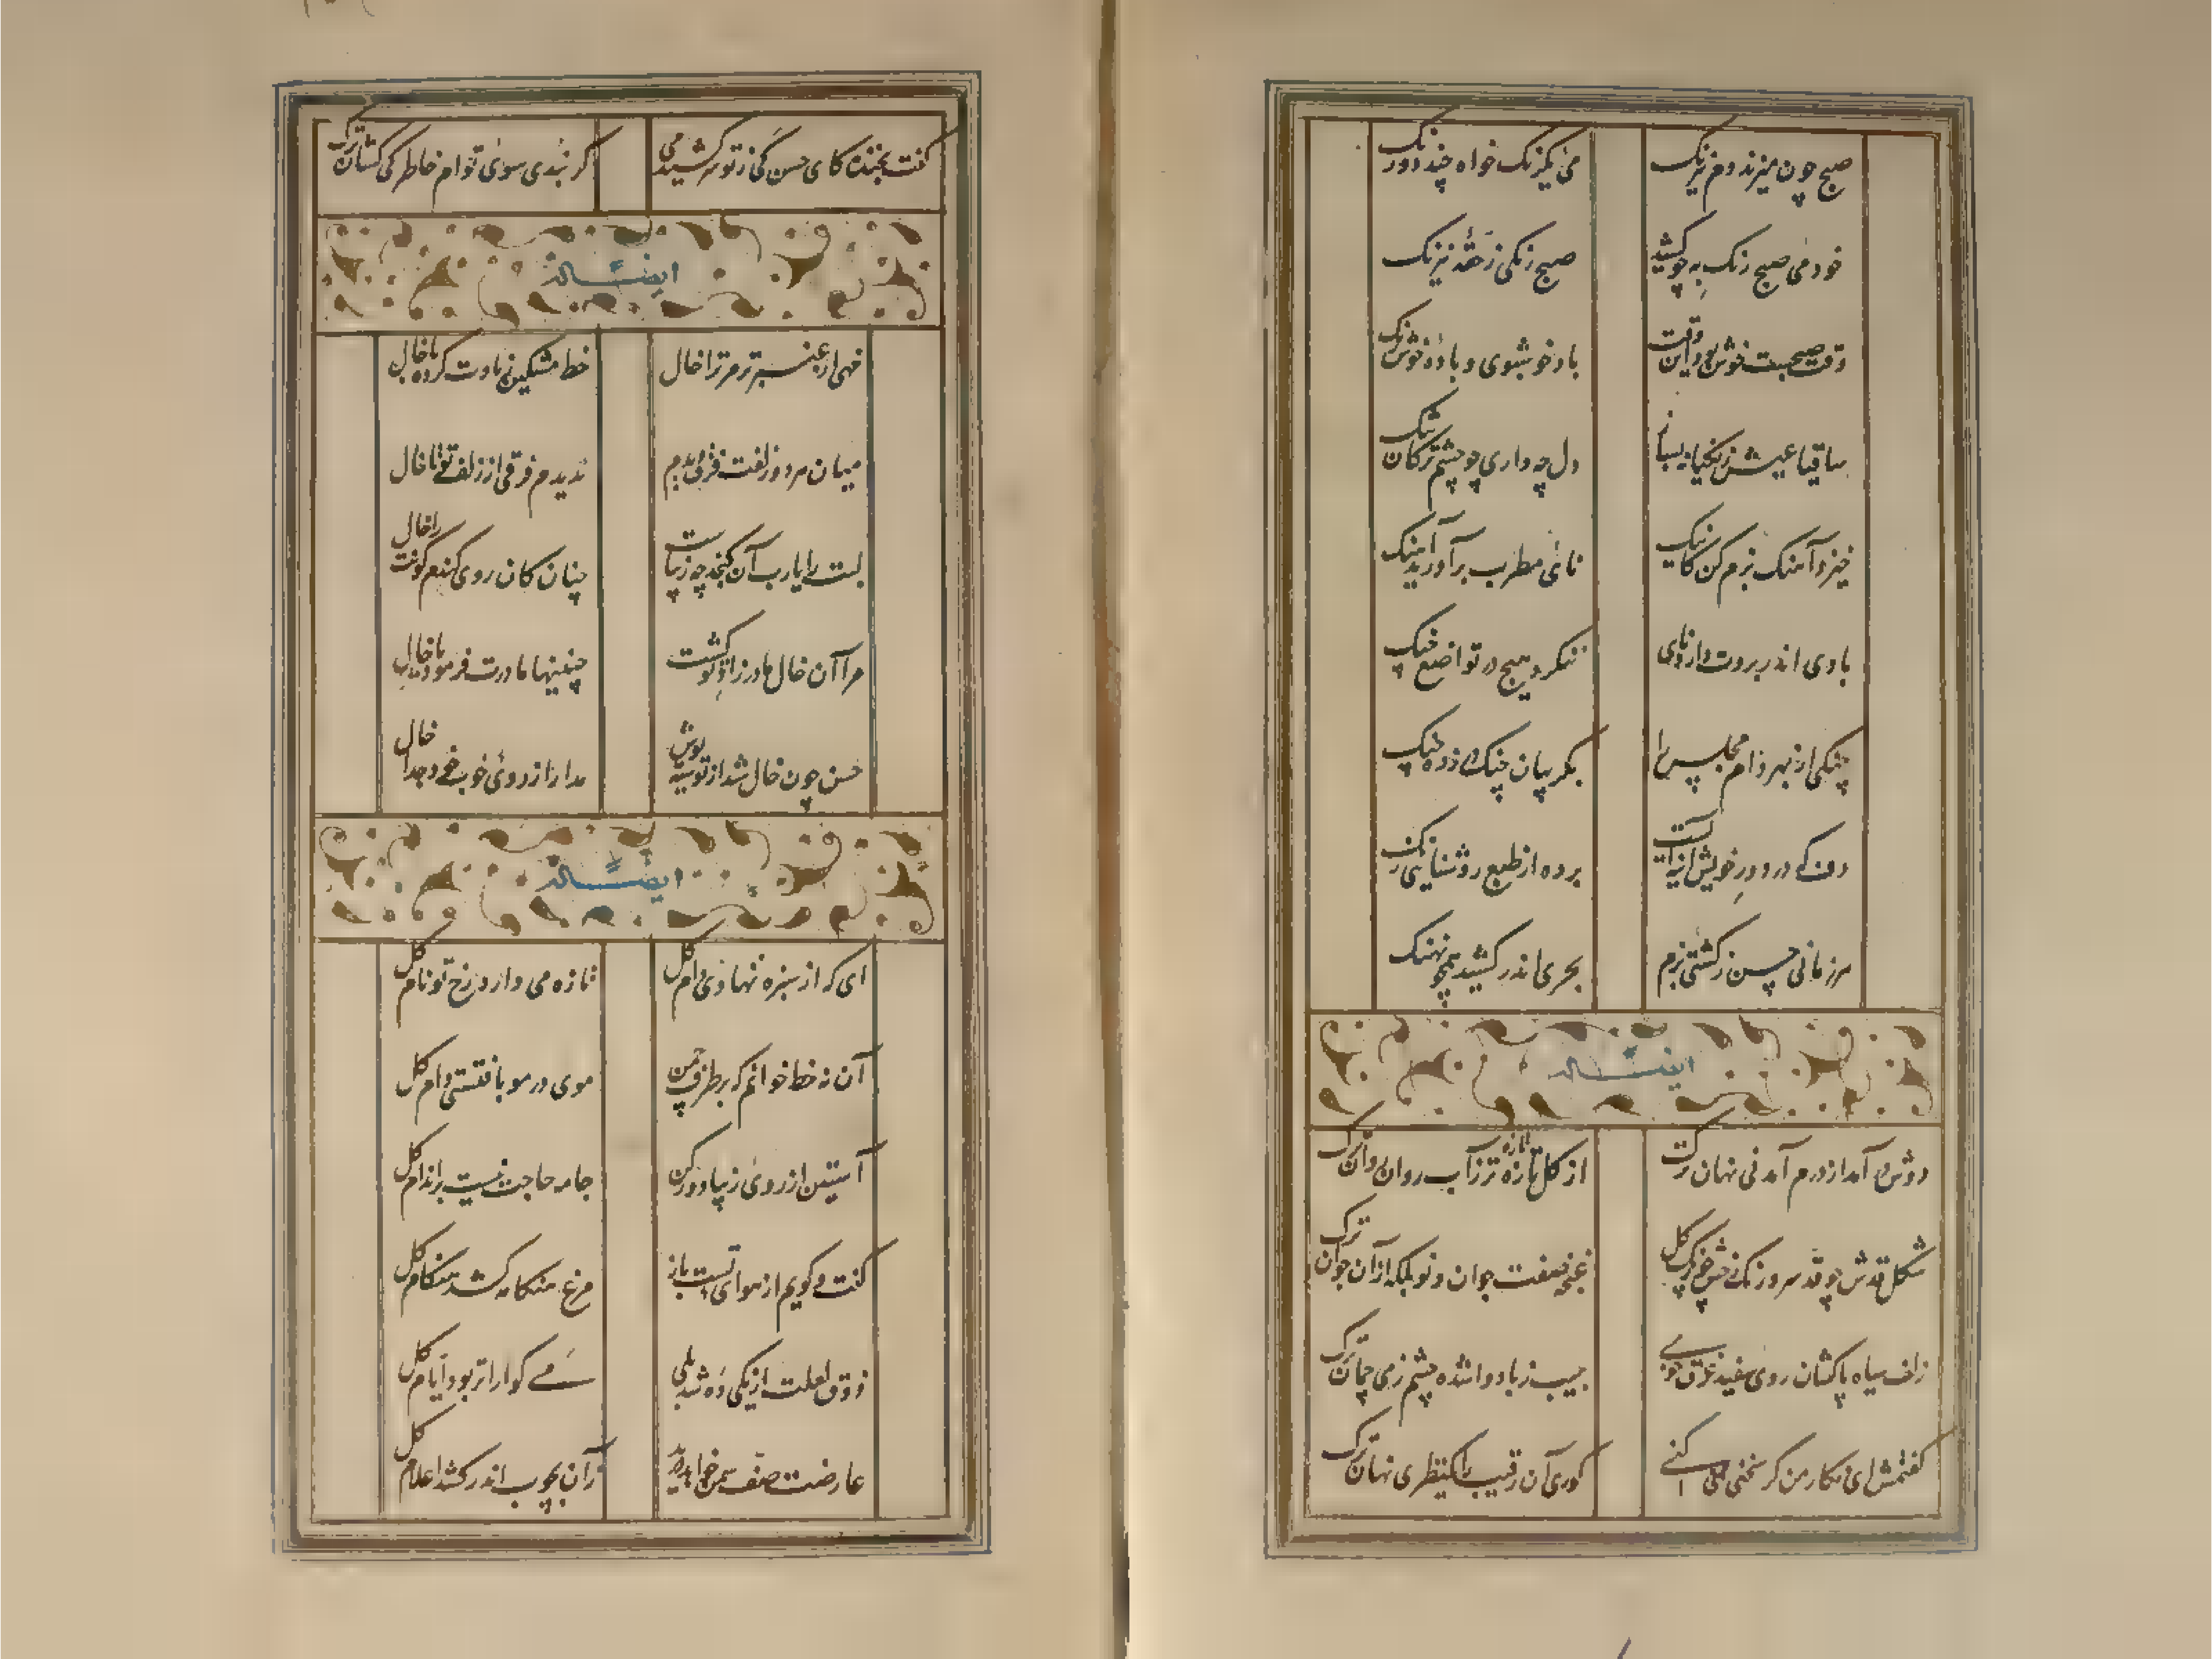 صبح چون میزند دم نیرنگ
می یکرنگ خواه چند درنگ
خود می صبح رنگ به چو کشید
صبح زنگی ز حقه نیرنگ
وقت صحبت خوش بود این وقت
باد خوشبوی و باده خوش رنگ
ساقیا عیش
دل چه داری چو چشم ترکان تنگ
خیز و آهنگ بزم کن کاینک
نای مطرب برآورید آهنگ
بادی اندر بروت دارد نای
ننگرد هیچ در تواضع چنگ
چنگی از بهر دام مجلس را
بگریبان چنگ در زده چنگ
دف که در دور خویش
برده از طبع روشنایی زنگ
هر زمانی حسن ز کشتی بزم
بحری اندر کشید همچو نهنگ
ایضاً له
دوش در آمد از درم آمدنی نهان ترک
از گل تازه تازه تر ز آب روان روان ترک
شکل قدش چو قد سرو
غنچه صفت جوان و نو بلکه از آن جوان ترک
زلف سیاه پاکشان روی سفید
جیب ز باد وا شده چشم ز می چمان ترک
گفتمش ای نگار من گر سخنی
کوری آن رقیب را یکنظری نهان ترک
گفت بخنده کای حسن گی ز تو سر کشیدمی
گر نبدی سوی توام خاطر کی کشان ترک
ایضاً له
زهی از عنبر تر مر ترا خال
خط مشکین ز یادت کرده با خال
میان سر دو زلفت فرق دیدم
ندیدم فرقی از زلف تو تا خال
لبت را یارب آن کنجد چه زیباست
چنان کان روی گندم گونت را خال
مرا آن خال مادرزاد تو کشت
چنینها مادرت فرمود یا خال
حسن چون خال شد از تو سیه پوش
مدارا از روی خوب خود جدا خال
ایضاً له
ای که از سبزه نهادی دام گل
تازه می دارد رخ تو نام گل
آن نه خط خوانم که بر طرف چمن
موی در مو بافتستی دام گل
آستین از روی زیبا دور کن
جامه حاجت نیست بر اندام گل
گفت و گویم از هوای تست باز
مرغ هنگامه کشد هنگام گل
ذوق لعلت از یکی ده شد بلی
می گوارا تر بود ایام گل
عارضت صف سمن خواهد درید
زان بچوب اندر کشد اعلام گل